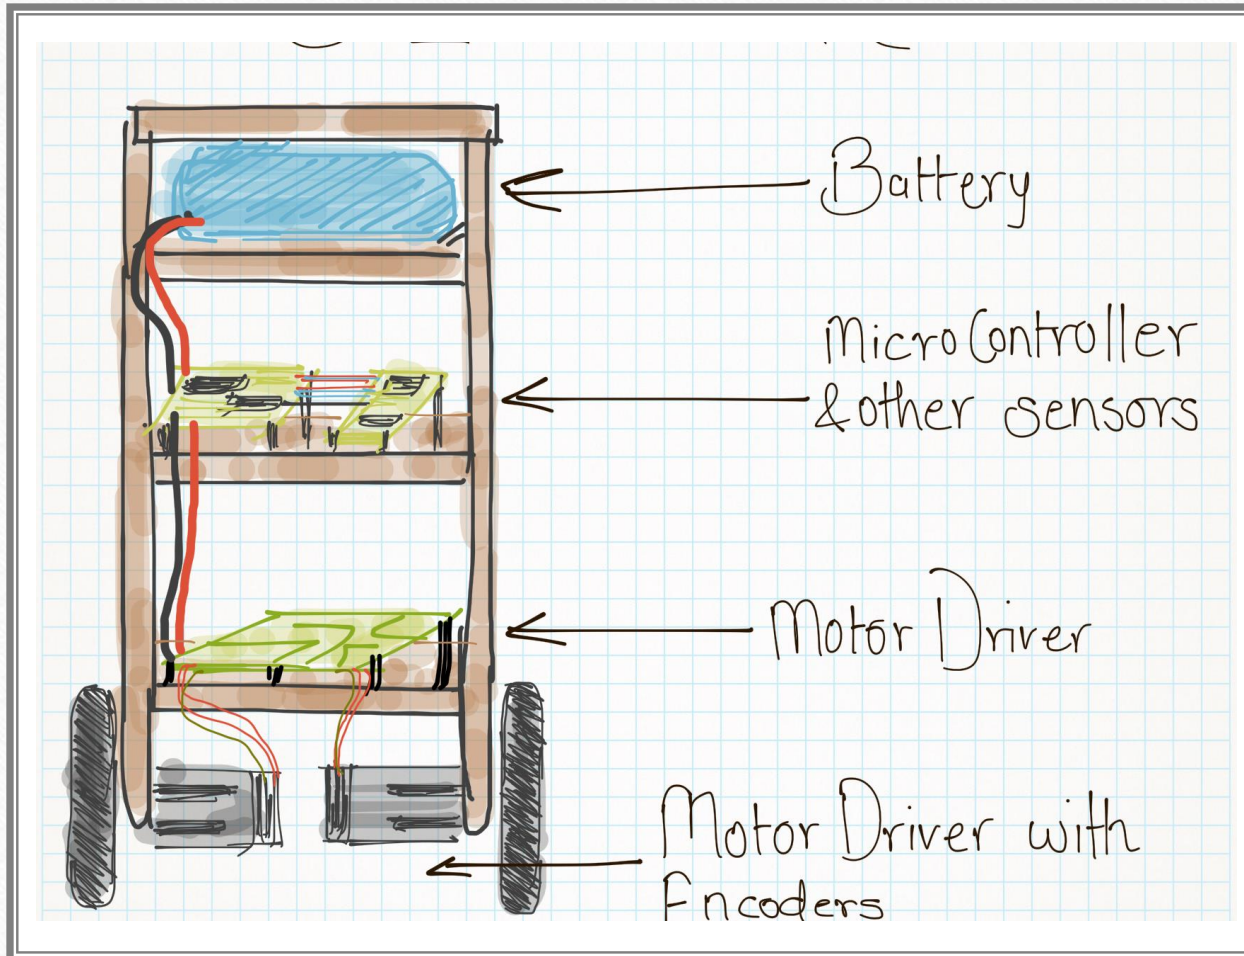 Battery
MicroController
& other sensors
Motor Driver
Motor Driver with
Encoders